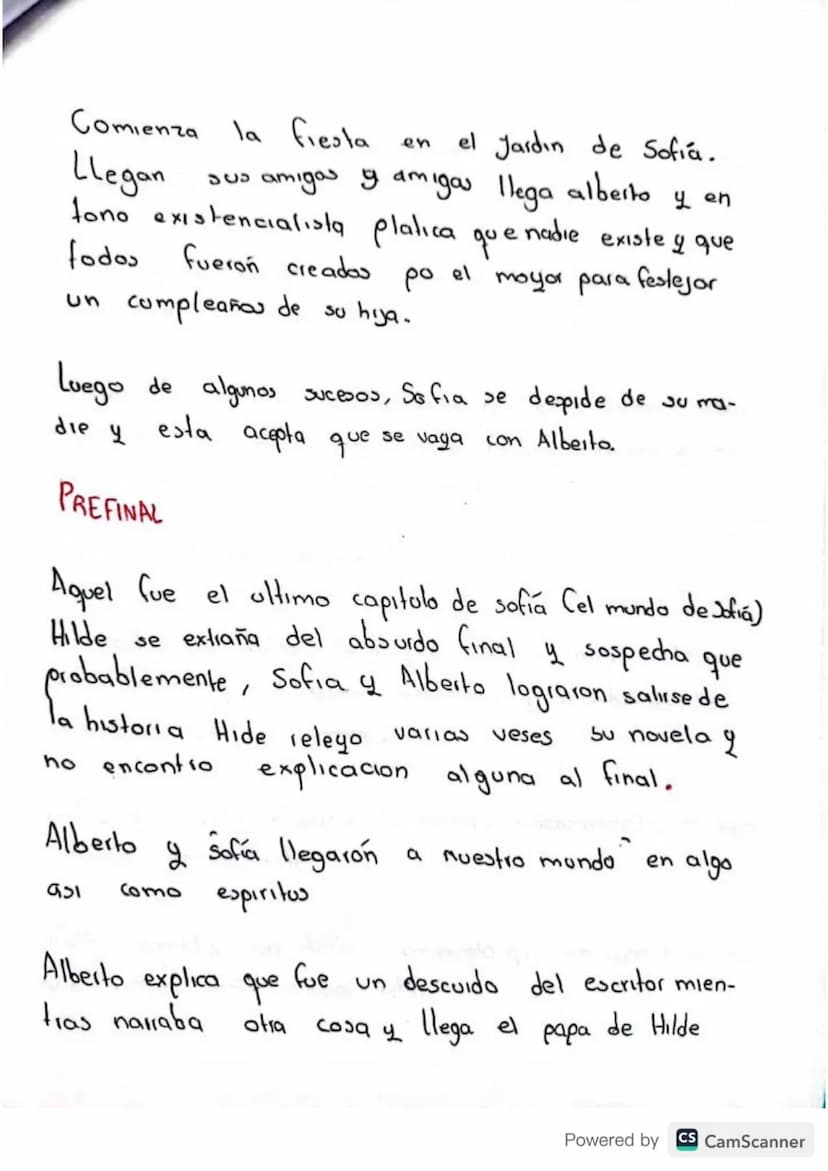 Comienza la fiesta en el Jardin de Sofía.
Llegan sus amigos y amigas llega alberto y en
tono existencialista platica que nadie existe y que
todos fuerón creados po el mayor para festejar
un cumpleaños de su hija.
Luego de algunos sucesos, Sofia se despide de su ma-
dre y esta acepta que se vaga con Alberto.
PREFINAL
Aquel fue el ultimo capitulo de sofía (el mundo de Sofiá)
Hilde se extraña del absurdo final y sospecha que
probablemente, Sofia y Alberto lograron salirse de
la historia Hide releyo varias veses su novela y
no encontro explicacion alguna al final.
Alberto y "sofía llegarón a nuestro mundo" en algo
asi como espiritus
Alberto explica que fue un descuido del escritor mien-
tras narraba otra cosa y llega el papa de Hilde
Powered by CS CamScanner